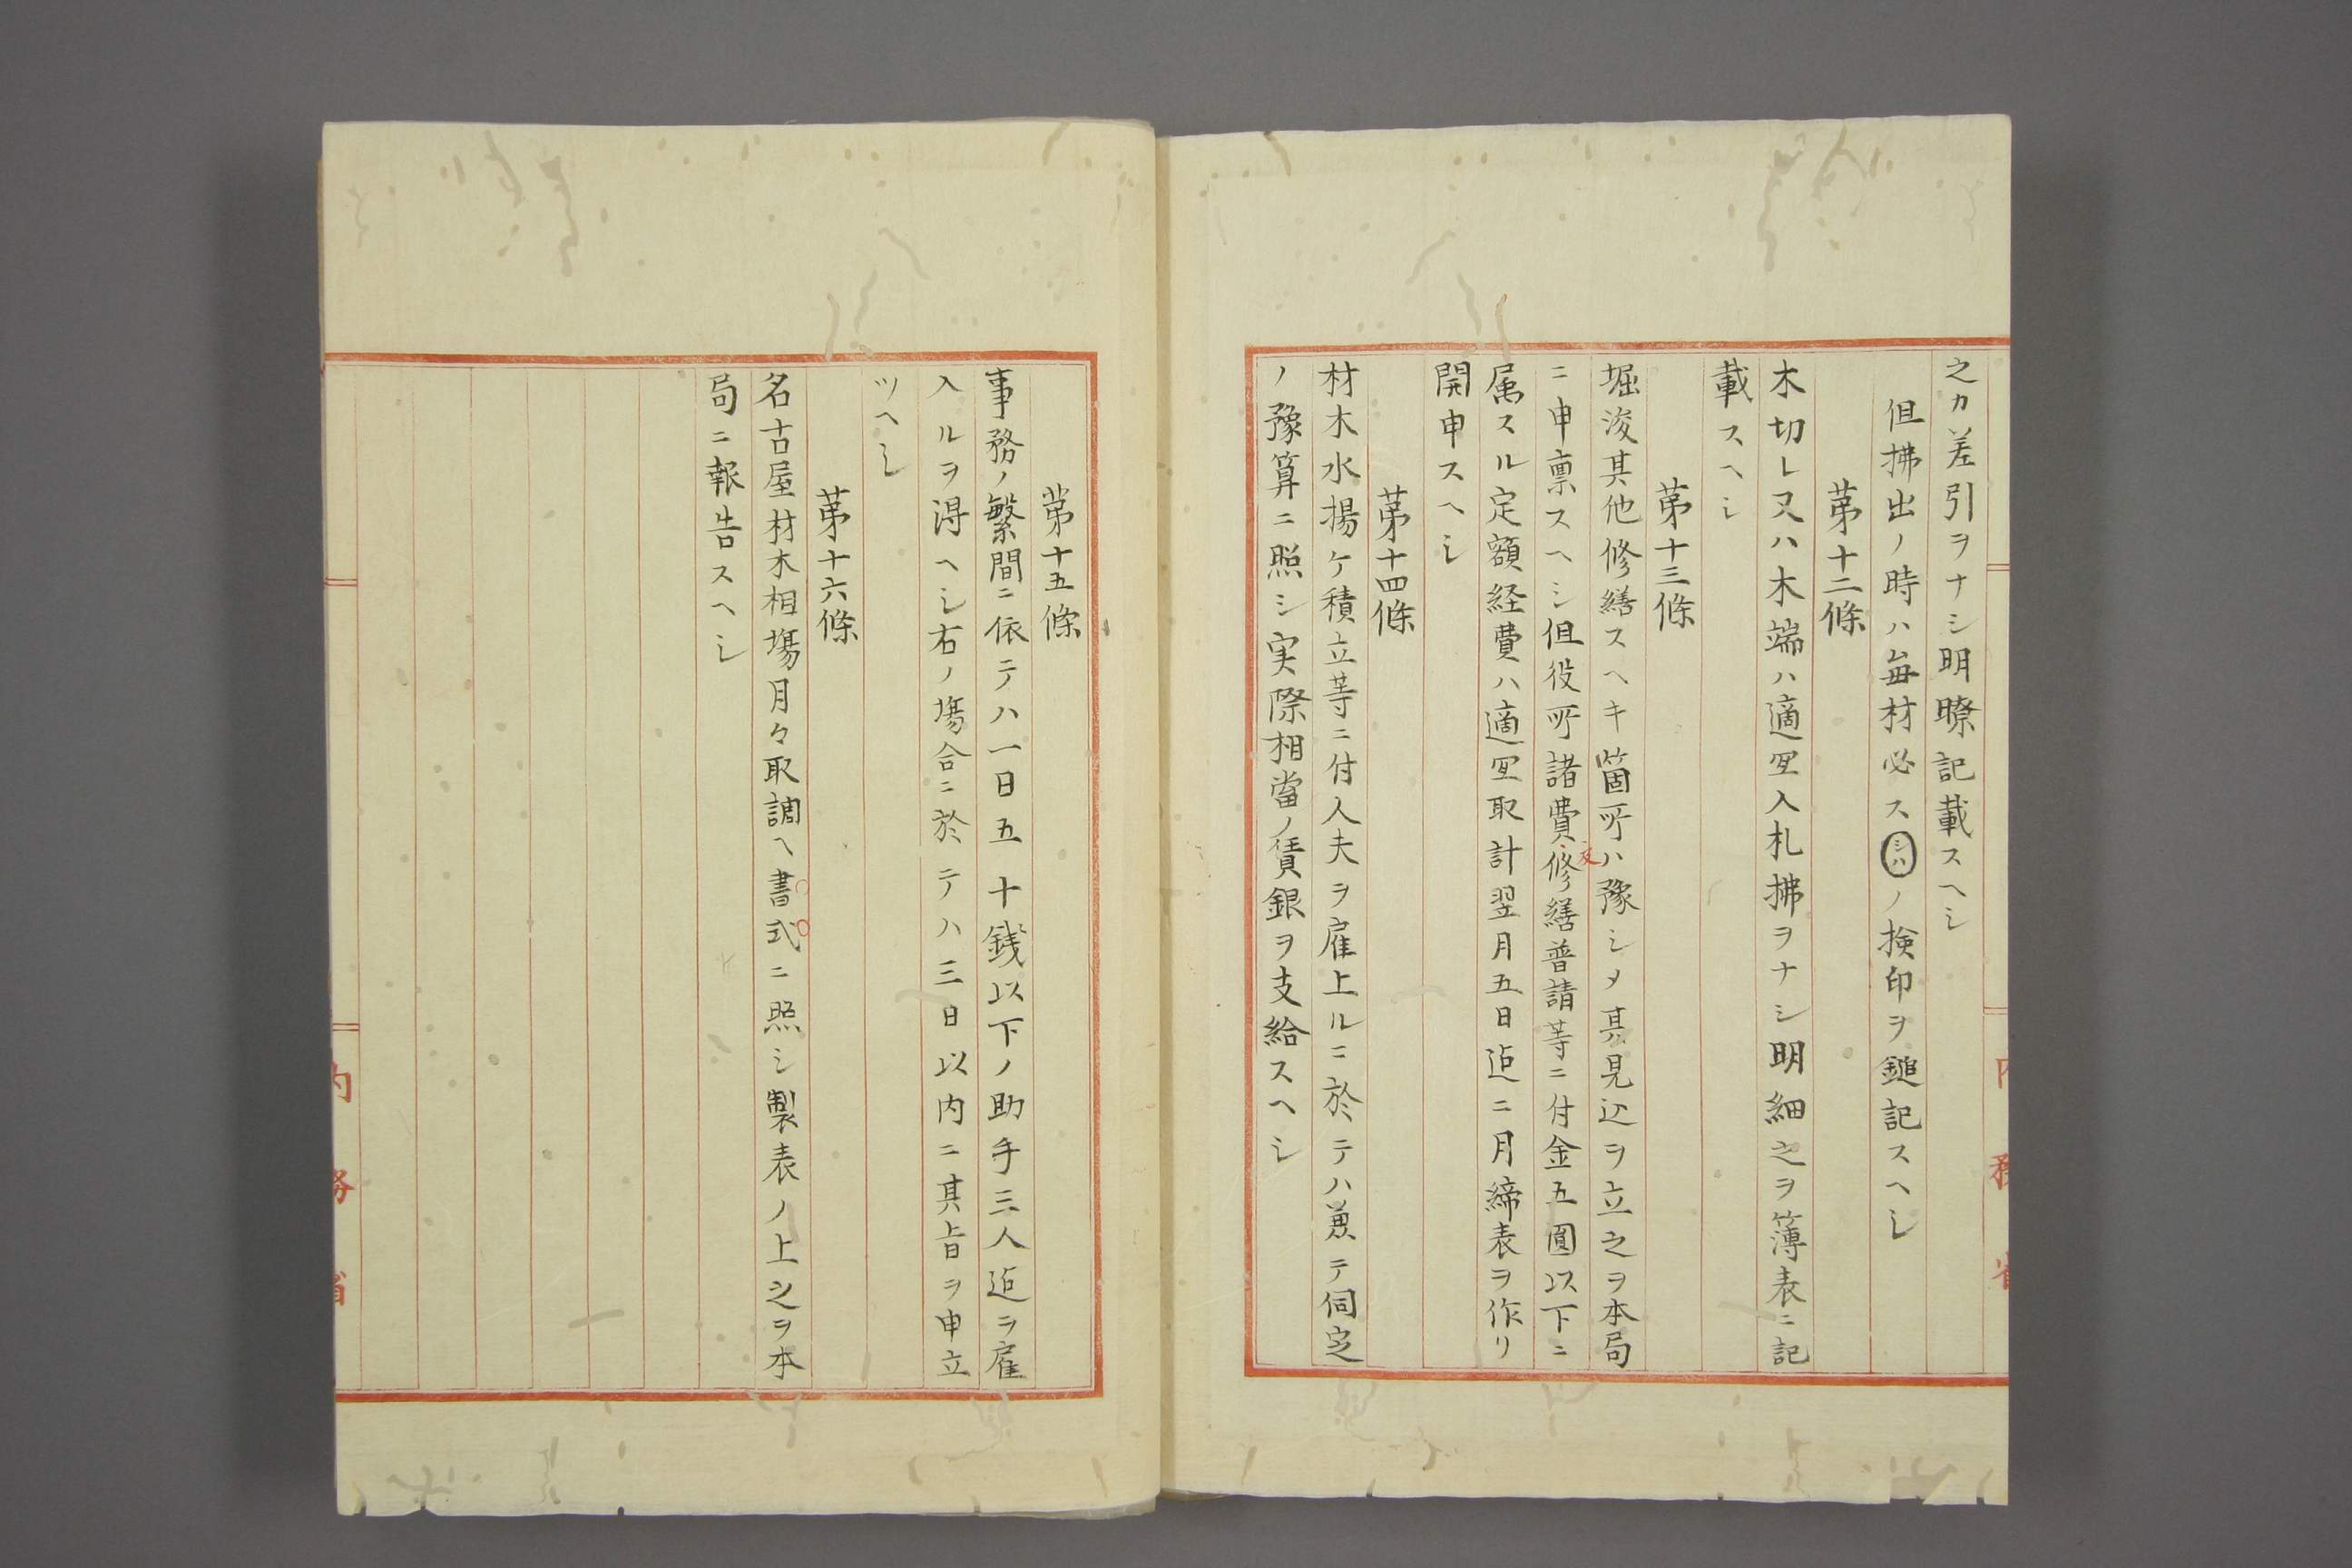 之カ差引ヲナシ明瞭記載スヘシ
但拂出ノ時ハ毎材必スシハノ検印ヲ鎚記スヘシ
第十二條
木切レ又ハ木端ハ適宜入札拂ヲナシ明細之ヲ簿表ニ記
載スヘシ
第十三條
堀浚其他修繕スヘキ箇所ハ豫シメ其見込ヲ立之ヲ本局
ニ申禀スヘシ但役所諸費及修繕普請等ニ付金五圓以下ニ
属スル定額経費ハ適宜取計翌月五日迠ニ月締表ヲ作リ
開申スヘシ
第十四條
材木水揚ケ積立等ニ付人夫ヲ雇上ルニ於テハ兼テ伺定
ノ豫算ニ照シ実際相當ノ賃銀ヲ支給スヘシ
第十五條
事務ノ繁間ニ依テハ一日五十銭以下ノ助手三人迠ヲ雇
入ルヲ得ヘシ右ノ塲合ニ於テハ三日以内ニ其旨ヲ申立
ツヘシ
第十六條
名古屋材木相塲月々取調ヘ書式ニ照シ製表ノ上之ヲ本
局ニ報告スヘシ
内務省